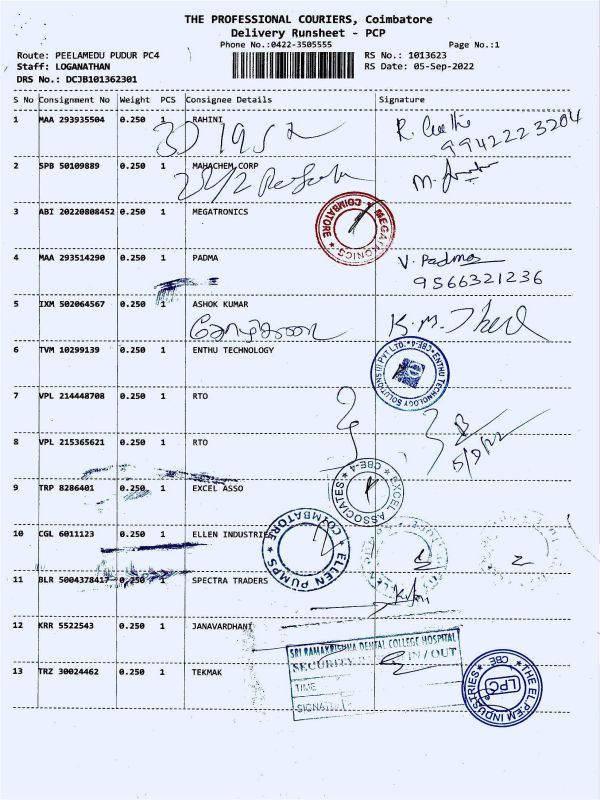 THE PROFESSIONAL COURIERS, Coimbatore
Delivery Runsheet - PCP
Phone No.:0422-3505555
Page No.:1
Route: PEELAMEDU PUDUR PC4
RS No.: 1013623
Staff: LOGANATHAN
RS Date: 05-Sep-2022
DRS No.: DCJB101362301
S No Consignment No Weight PCS Consignee Details Signature
1 MAA 293935504 0.250 1 RAHINI
9942223204
2 SPB 50109889 0.250 1 MAHACHEM CORP
3 ABI 20220808452 0.250 1 MEGATRONICS
★ MEGATRONICS ★ COIMBATORE
4 MAA 293514290 0.250 1 PADMA V. Padma
9566321236
5 IXM 502064567 0.250 1 ASHOK KUMAR
6 TVM 10299139 0.250 1 ENTHU TECHNOLOGY
ENTHU TECHNOLOGY SOLUTIONS (I) PVT.LTD. CBE-4
7 VPL 214448708 0.250 1 RTO
8 VPL 215365621 0.250 1 RTO
5/9/22
9 TRP 8286401 0.250 1 EXCEL ASSO
★ EXCEL ASSOCIATES ★ CBE-4
10 CGL 6011123 0.250 1 ELLEN INDUSTRIES
★ ELLEN PUMPS ★ COIMBATORE
11 BLR 5004378417 0.250 1 SPECTRA TRADERS
12 KRR 5522543 0.250 1 JANAVARDHANI
SRI RAMAKRISHNA DENTAL COLLEGE HOSPITAL
SECURITY IN / OUT
TIME
13 TRZ 30024462 0.250 1 TEKMAK
★ THE EL.P.EM INDUSTRIES ★ CBE
LPC